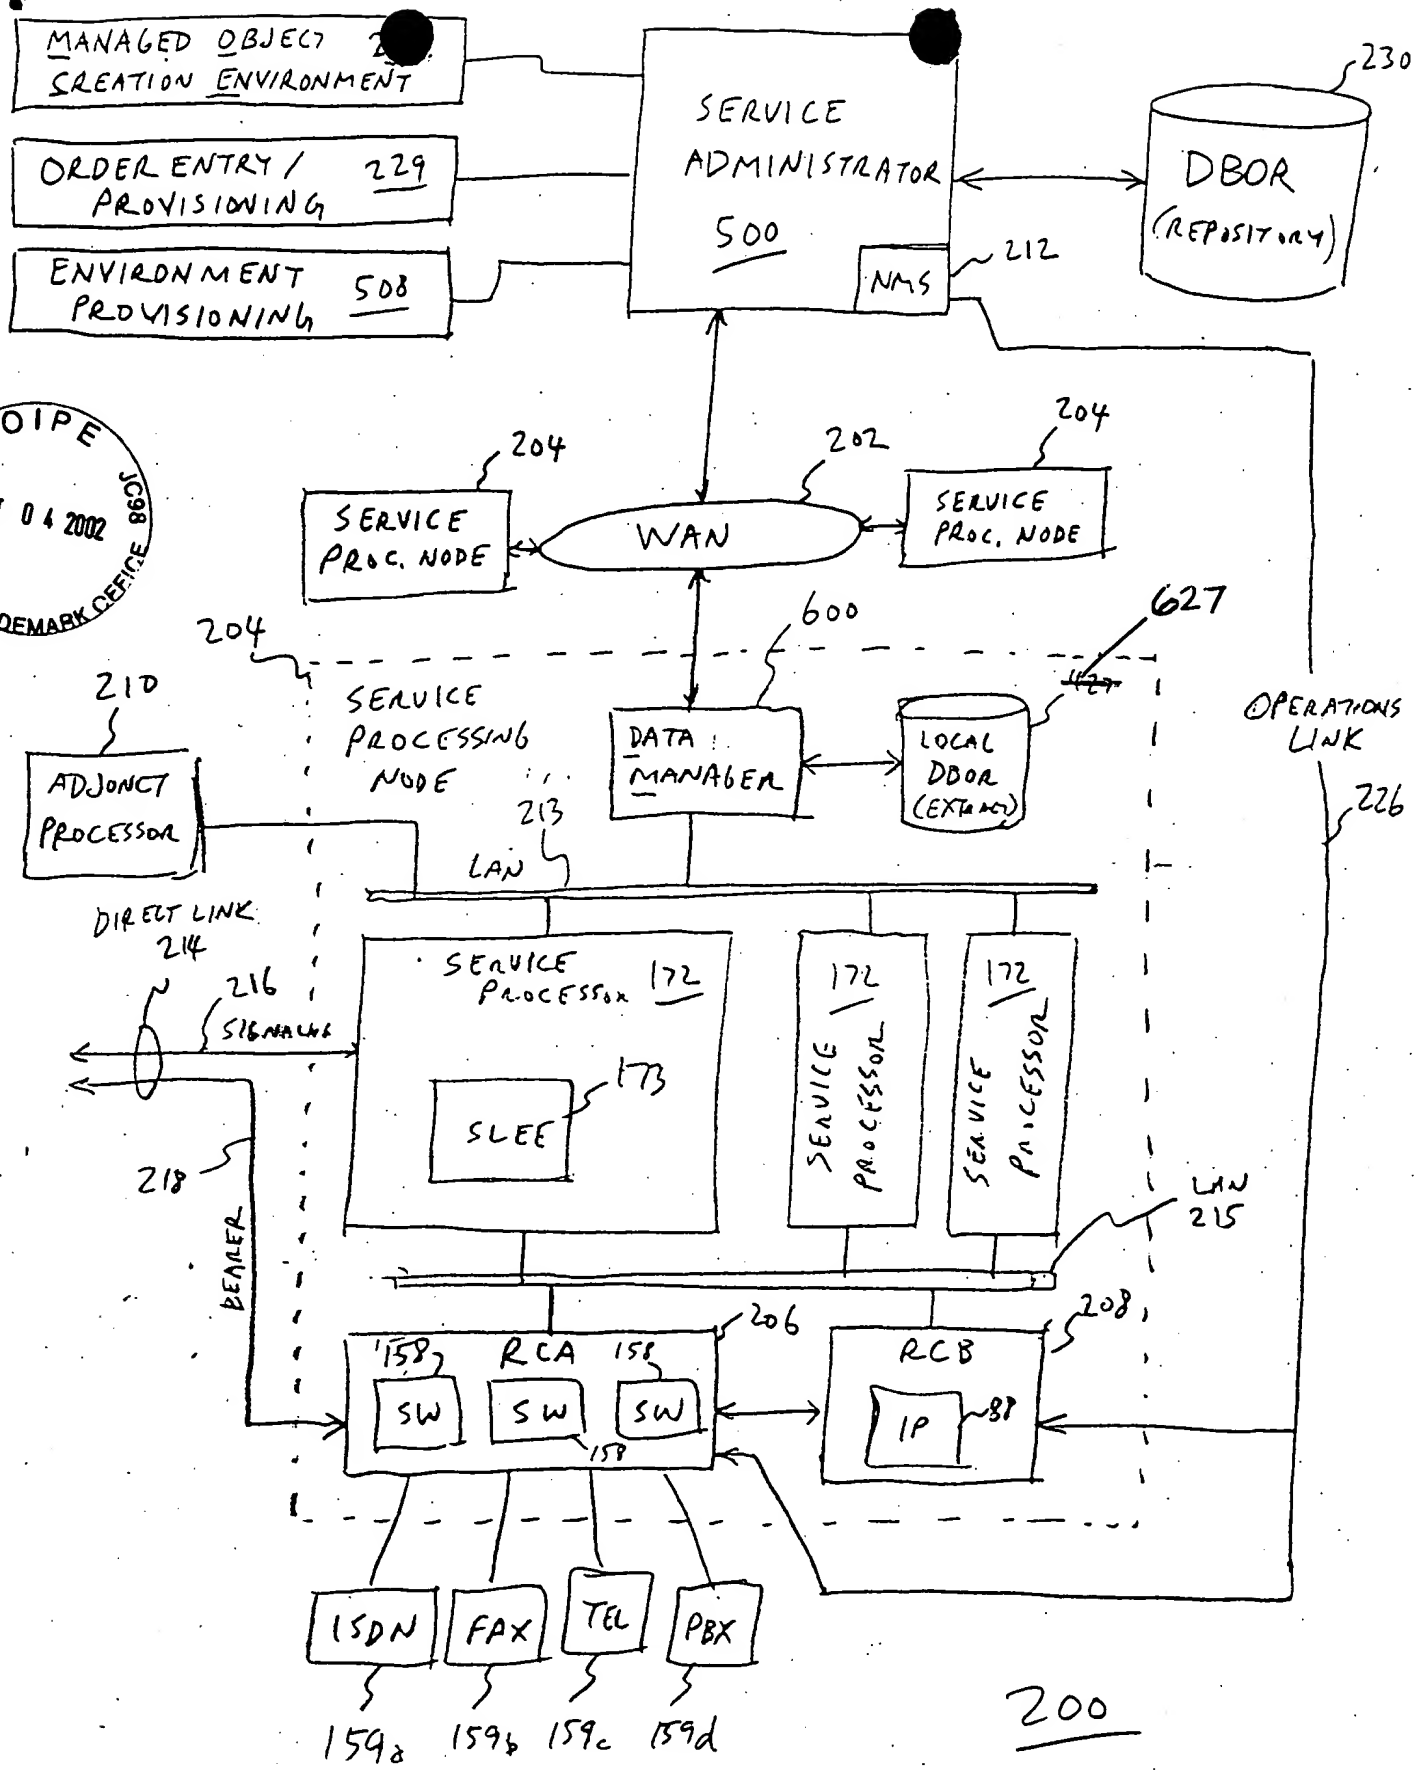 MANAGED OBJECT
CREATION ENVIRONMENT
ORDER ENTRY / 229
PROVISIONING
ENVIRONMENT 508
PROVISIONING
SERVICE
ADMINISTRATOR
500
NMS
212
230
DBOR
(REPOSITORY)
OIPE
JC98
0 4 2002
DEMARK OFFICE
204
SERVICE
PROC. NODE
202
WAN
204
SERVICE
PROC. NODE
204
SERVICE
PROCESSING
NODE
600
DATA
MANAGER
627
LOCAL
DBOR
(EXTRACT)
OPERATIONS
LINK
226
210
ADJUNCT
PROCESSOR
213
LAN
DIRECT LINK
214
216
SIGNALING
218
BEARER
SERVICE
PROCESSOR 172
173
SLEE
172
SERVICE
PROCESSOR
172
SERVICE
PROCESSOR
LAN
215
206
RCA
158
158
SW
SW
SW
158
208
RCB
IP
88
ISDN
FAX
TEL
PBX
159a
159b
159c
159d
200